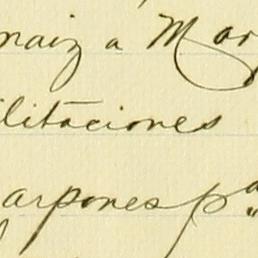 maiz a Mar
ilitaciones
arpones pa